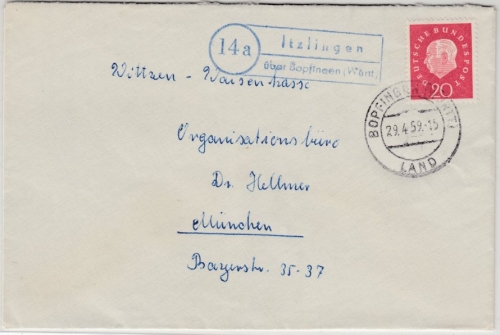 14a
Itzlingen
über Bopfingen (Württ)
DEUTSCHE BUNDESPOST
20
BOPFINGEN (WÜRTT)
29.4.59.-15
LAND
Wittzen - Waisenkasse
Organisationsbüro
Dr. Hellmer
München
Bayerstr. 35-37